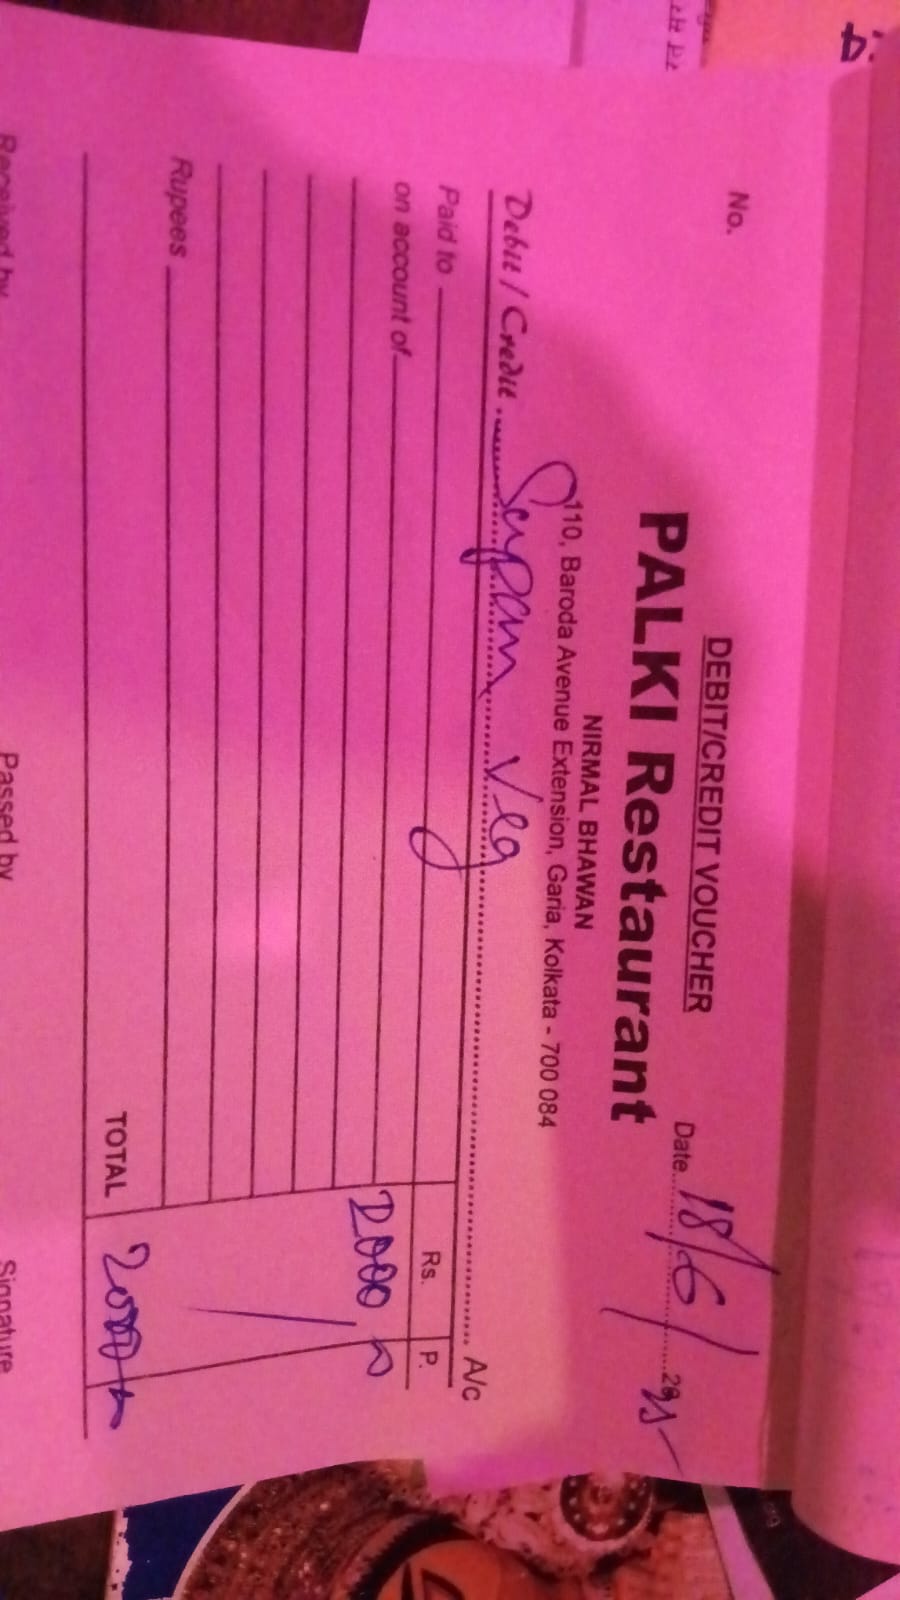 DEBIT/CREDIT VOUCHER
No.
Date 18/6/2025
PALKI Restaurant
NIRMAL BHAWAN
110, Baroda Avenue Extension, Garia, Kolkata - 700 084
Debit / Credit Veg A/c
Paid to Rs. P.
on account of 2000
Rupees
TOTAL 2000
Received by Passed by Signature